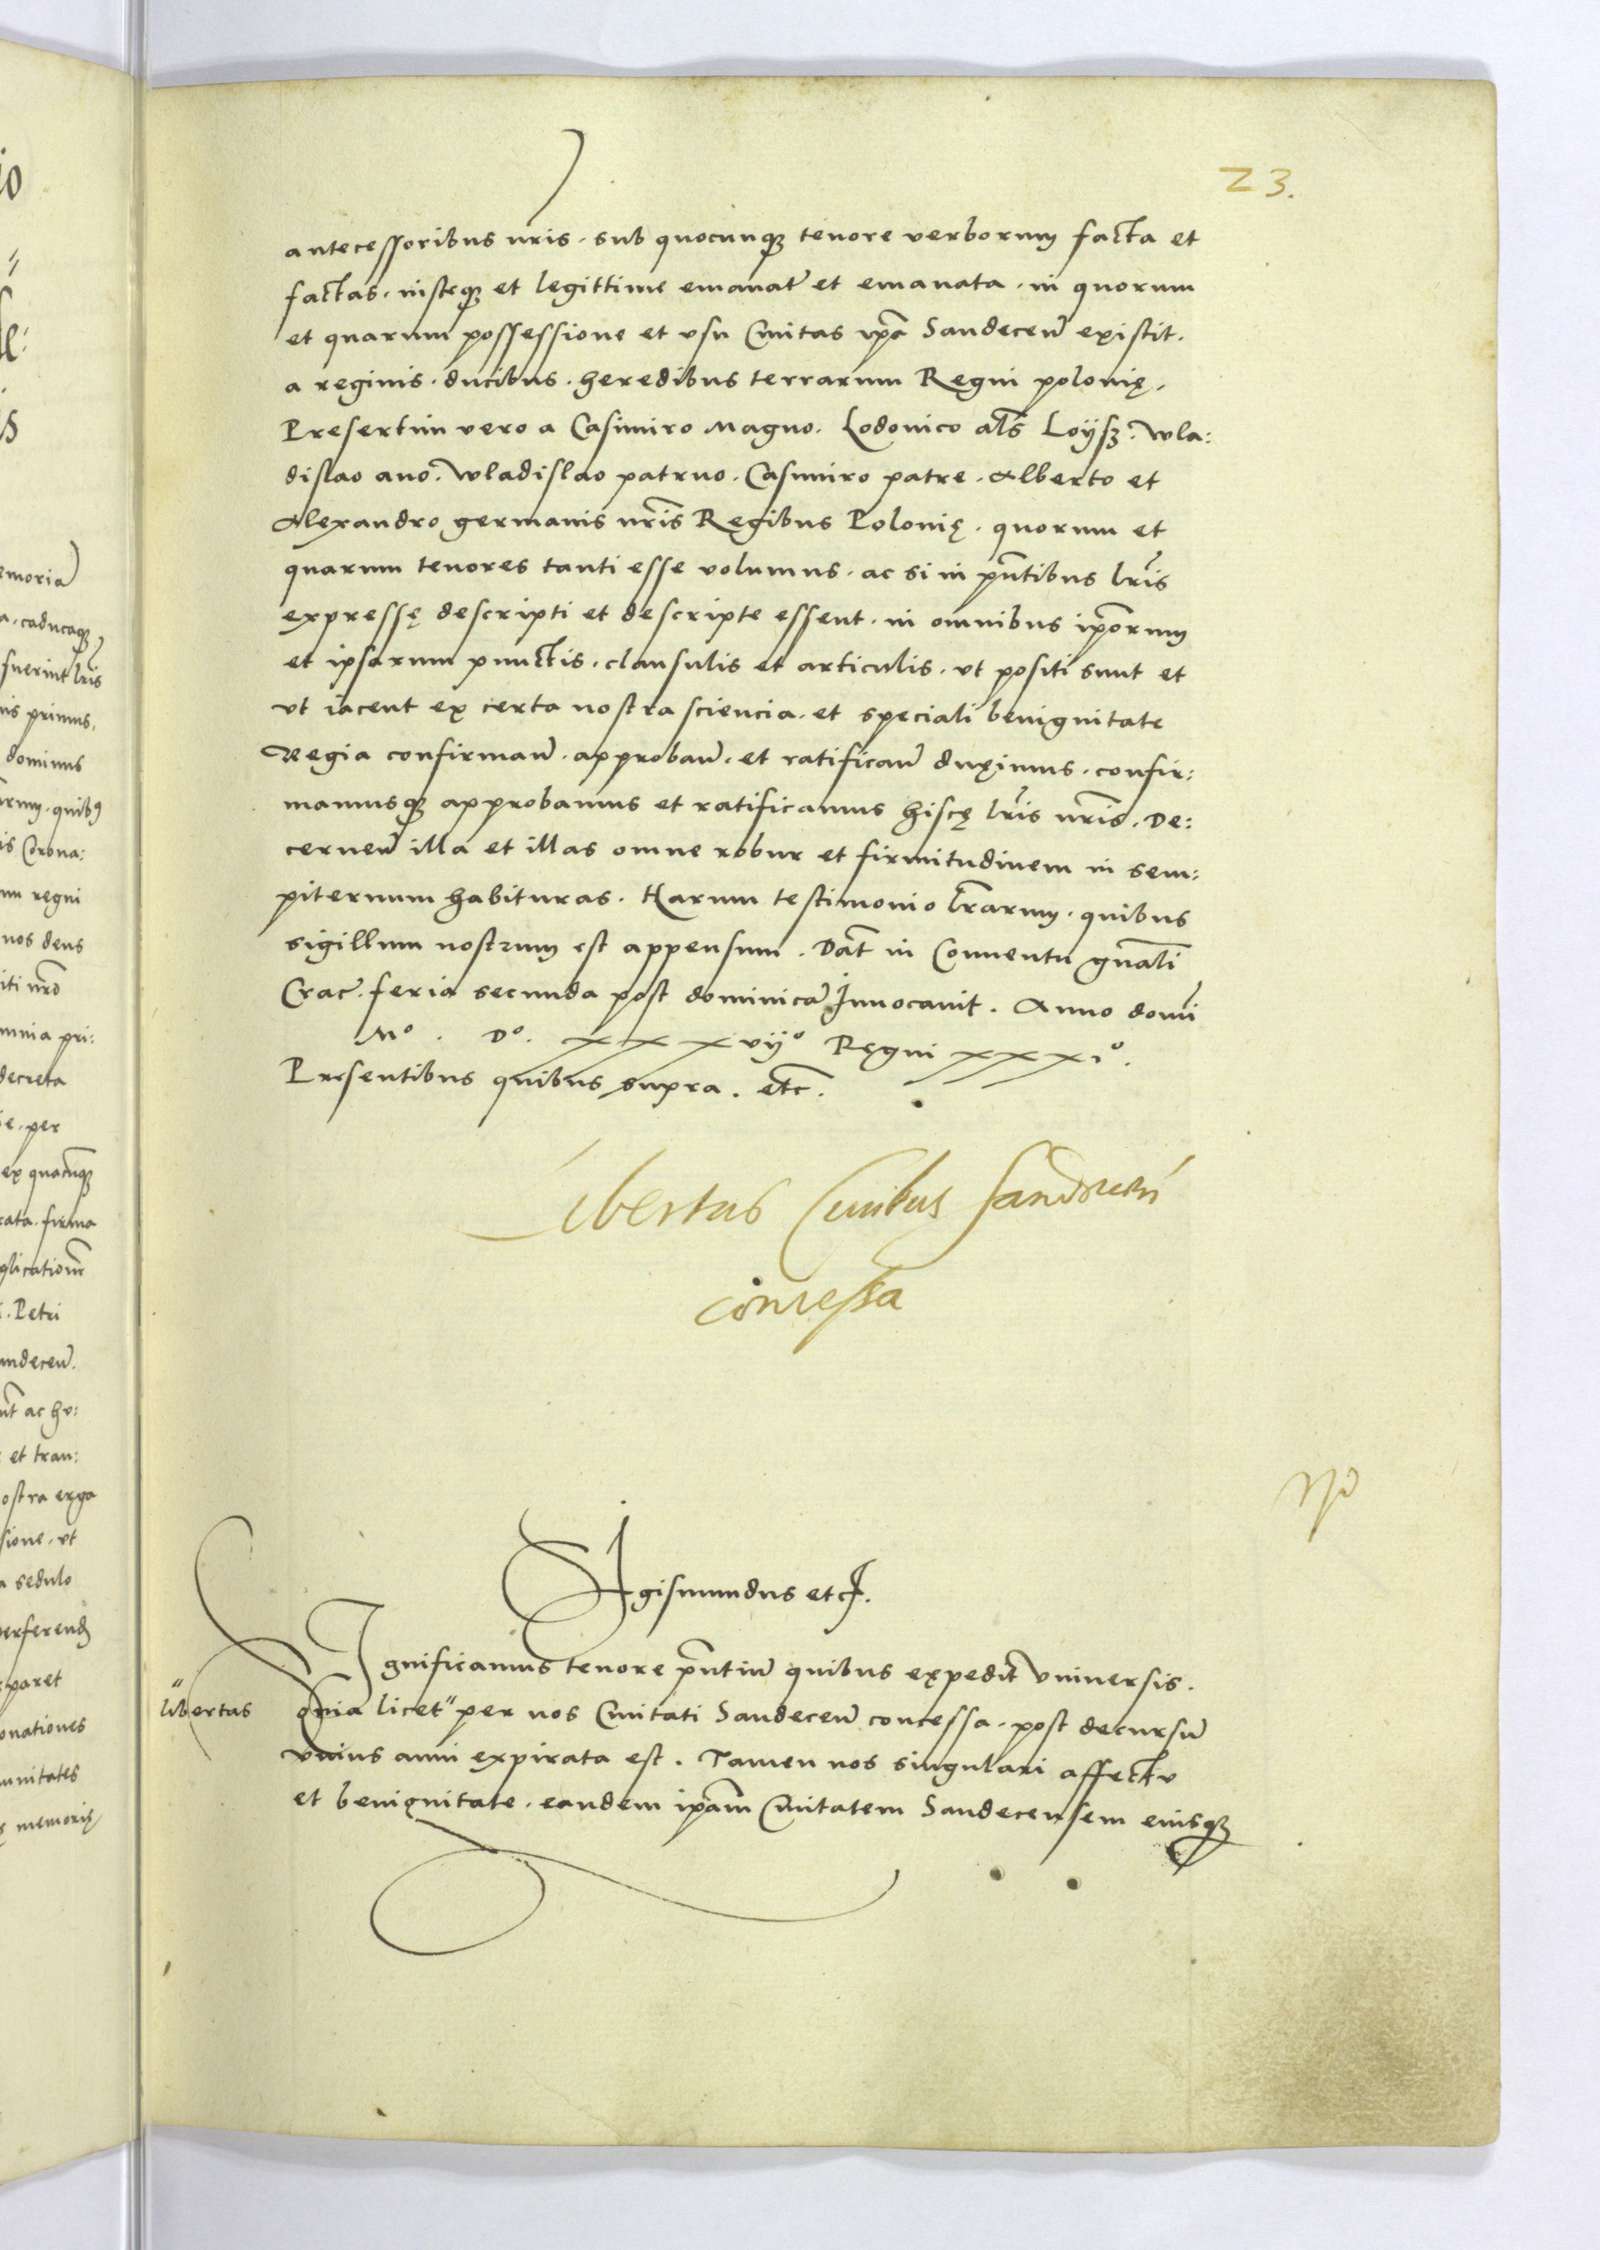 23.
antecessoribus nr̃is. sub quocunqꝫ tenore verborum facta et
factas. iusteqꝫ et legittime emanat̃ et emanata. in quorum
et quarum possessione et vsu Ciuitas ip̃a Sandecen̄ existit.
a reginis. ducibus. heredibus terrarum Regni polonię.
Presertim vero a Casimiro Magno. Lodouico al̃s Loÿsʒ. Wla:
dislao auo. Wladislao patruo. Casimiro patre. Alberto et
Alexandro germanis nr̃is Regibus Polonię. quorum et
quarum tenores tanti esse volumus. ac si in p̃ntibus l̃ris
expressę descripti et descripte essent. in omnibus ip̃orum
et ipsarum punctis. clausulis et articulis. vt positi sunt et
vt iacent ex certa nostra sciencia. et speciali benignitate
Regia confirman̄. approban̄. et ratifican̄ duximus. confir:
mamusqꝫ approbamus et ratificamus hiscę l̃ris nr̃is. De:
cernen̄ illa et illas omne robur et firmitudinem in sem:
piternum habituras. Harum testimonio l̃rarum. quibus
sigillum nostrum est appensum. Dat̃ in Conuentu gnãli
Crac̃. feria secunda post dominicã Inuocauit. Anno domĩ
Mº. Dº. xxxvijº Regni xxxiº.
Presentibus quibus supra. etc̃.
Libertas Ciuibus Sandecen̄
concessa
Sigismundus etc̃.
Significamus tenore p̃ntiũ quibus expedit Vniuersis.
libertas
Quia licet" per nos Ciuitati Sandecen̄ concessa. post decursũ
vnius anni expirata est. Tamen nos singulari affectu
et benignitate. eandem ip̃am Ciuitatem Sandecensem eiusqꝫ